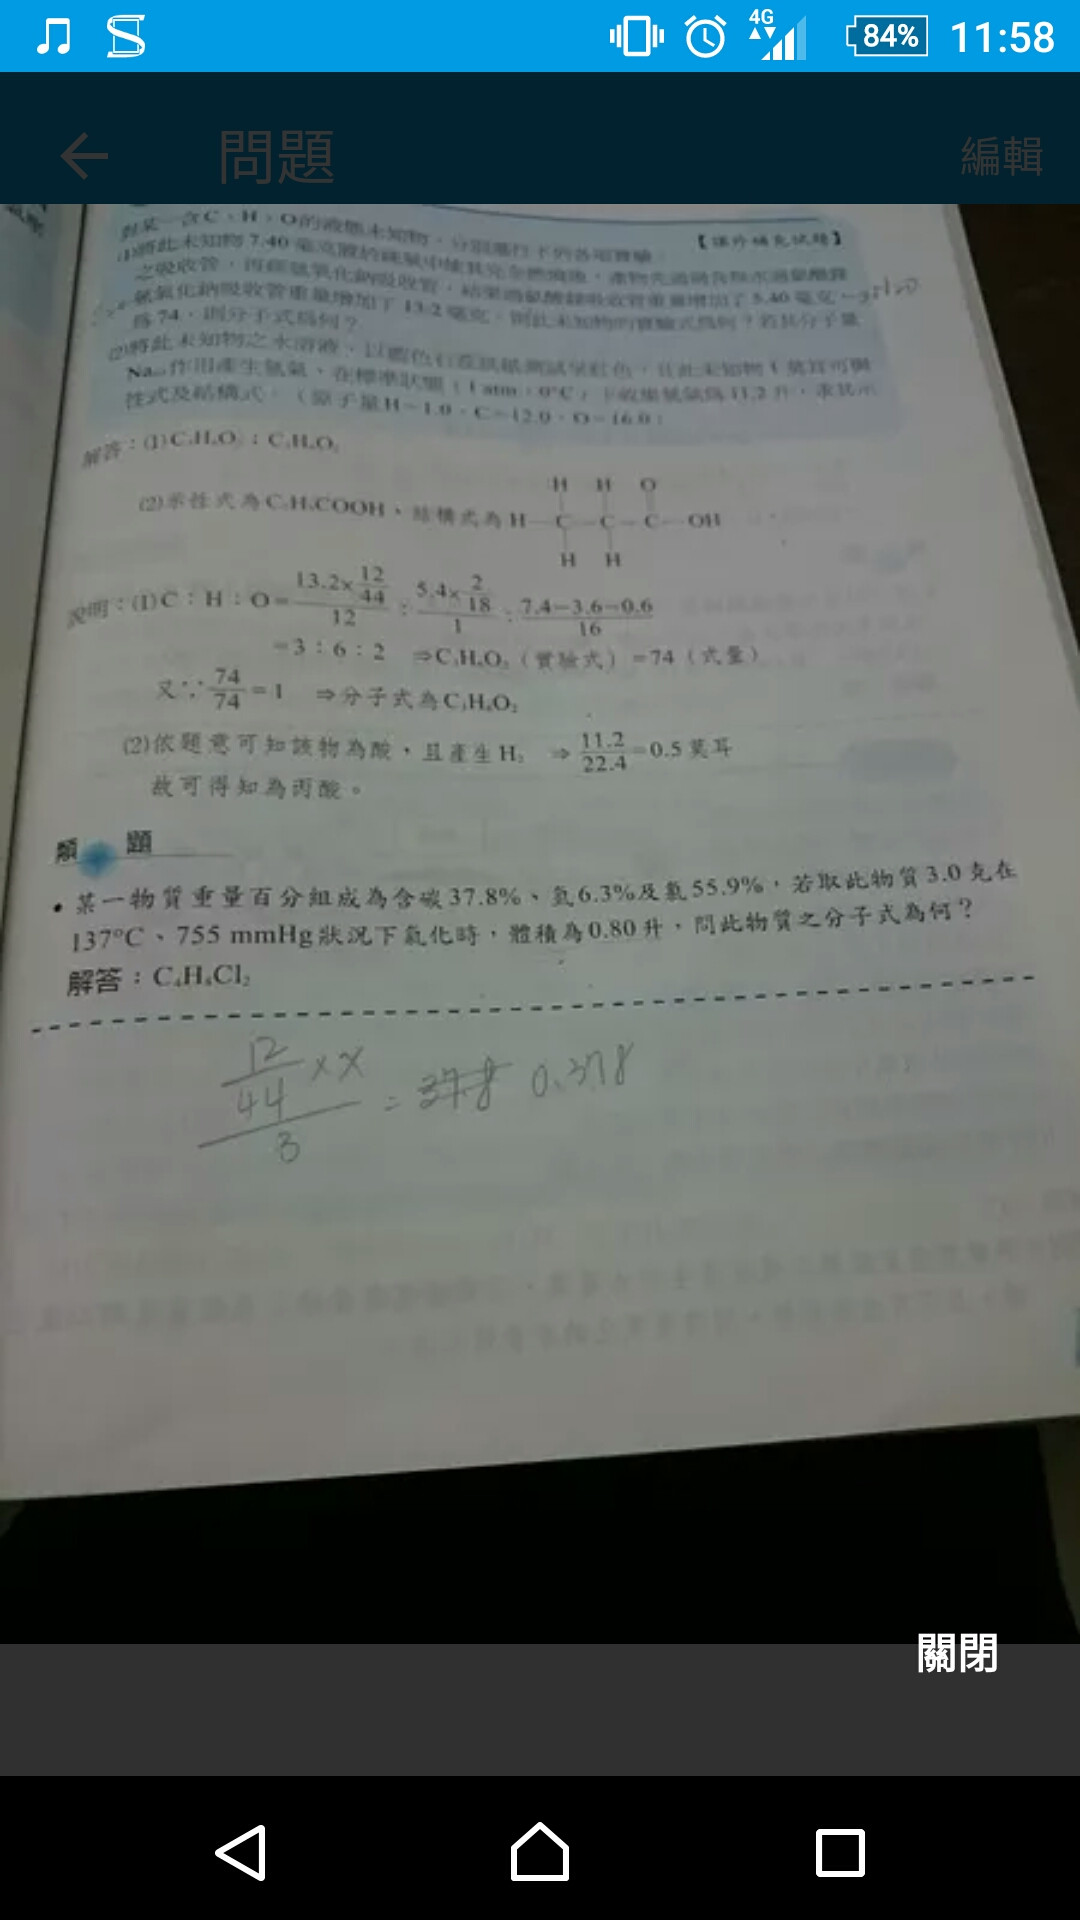 4G
84%
11:58
問題
編輯
對某一含C、H、O的液態未知物，分別進行下列各項實驗：
【課外補充試題】
(1)將此未知物7.40毫克
氫氧化鈉吸收管重量增加了13.2毫克，則此未知物的實驗式為何？若其分子量
為74，則分子式為何？
(2)將此未知物之水溶液，以藍色石蕊試紙測試呈紅色，且此未知物1莫耳可與
作用產生氫氣，在標準狀態（1 atm，0°C）下收集氫氣為11.2升，求其示
性式及結構式。（原子量H=1.0，C=12.0，O=16.0）
解答：(1)C₃H₆O₂；C₃H₆O₂
(2)示性式為C₂H₅COOH、結構式為
H H O
H—C—C—C—OH
H H
說明：(1)C：H：O=13.2×12/44/12：5.4×2/18/1：7.4−3.6−0.6/16
=3：6：2 ⇒C₃H₆O₂（實驗式）=74（式量）
又∵74/74=1 ⇒分子式為C₃H₆O₂
(2)依題意可知該物為酸，且產生H₂ ⇒11.2/22.4=0.5莫耳
故可得知為丙酸。
類題
• 某一物質重量百分組成為含碳37.8%、氫6.3%及氯55.9%，若取此物質3.0克在
137°C、755 mmHg狀況下氣化時，體積為0.80升，問此物質之分子式為何？
解答：C₄H₈Cl₂
12/44 × x / 3 = 37.8 0.378
關閉